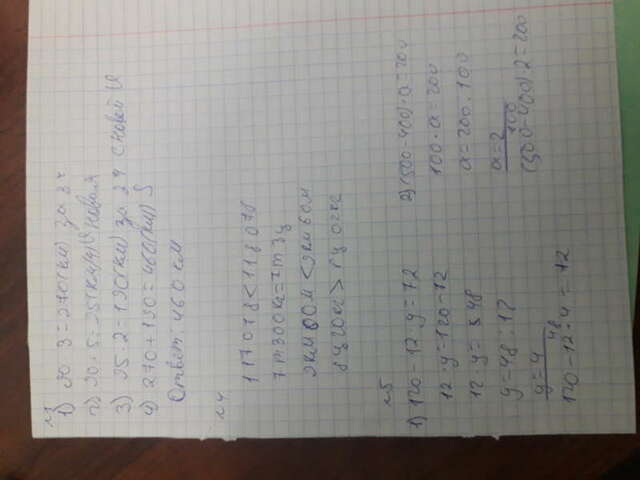 №3
1) 90 · 3 = 270 (км) за 3ч
2) 90 + 5 = 95 (км/ч) V новая
3) 95 · 2 = 190 (км) за 2ч с новой V
4) 270 + 190 = 460 (км) S
Ответ: 460 км
№4
117078 < 118078
7т300кг = 7т 3ц
9км 60м
8ц20кг > 8ц 02кг
№5
1) 120 - 12 · y = 72
12 · y = 120 - 72
12 · y = 48
y = 48 : 12
y = 4
48
120 - 12 · 4 = 72
2) (500 - 400) · a = 200
100 · a = 200
a = 200 : 100
a = 2
100
(500 - 400) · 2 = 200